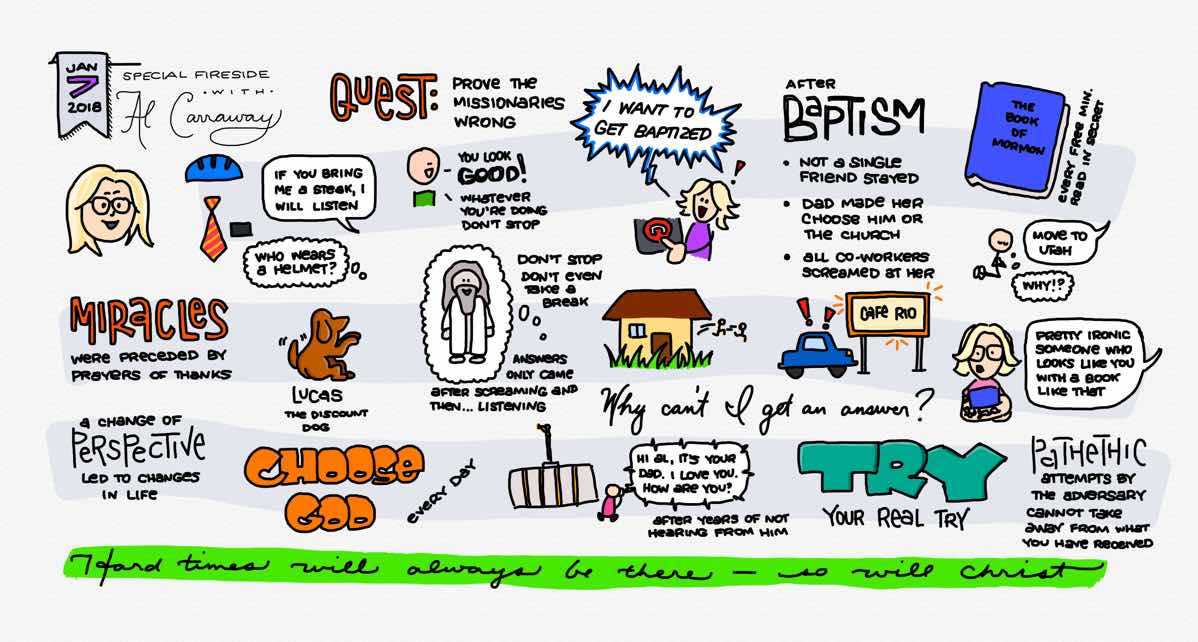 JAN
7
2018
SPECIAL FIRESIDE
• WITH •
Al Carraway
QUEST:
PROVE THE
MISSIONARIES
WRONG
I WANT TO
GET BAPTIZED
AFTER
BAPTISM
• NOT A SINGLE
FRIEND STAYED
• DAD MADE HER
CHOOSE HIM OR
THE CHURCH
• ALL CO-WORKERS
SCREAMED AT HER
THE
BOOK
OF
MORMON
EVERY FREE MIN.
READ IN SECRET
IF YOU BRING
ME A STEAK, I
WILL LISTEN
WHO WEARS
A HELMET?
YOU LOOK
GOOD!
WHATEVER
YOU'RE DOING
DON'T STOP
!
MOVE TO
UTAH
WHY!?
MIRACLES
WERE PRECEDED BY
PRAYERS OF THANKS
LUCAS
THE DISCOUNT
DOG
DON'T STOP
DON'T EVEN
TAKE A
BREAK
ANSWERS
ONLY CAME
AFTER SCREAMING AND
THEN... LISTENING
!!
CAFE RIO
PRETTY IRONIC
SOMEONE WHO
LOOKS LIKE YOU
WITH A BOOK
LIKE THAT
Why can't I get an answer?
A CHANGE OF
PERSPECTIVE
LED TO CHANGES
IN LIFE
CHOOSE
GOD
EVERY DAY
HI AL, IT'S YOUR
DAD. I LOVE YOU.
HOW ARE YOU?
AFTER YEARS OF NOT
HEARING FROM HIM
TRY
YOUR REAL TRY
PATHETHIC
ATTEMPTS BY
THE ADVERSARY
CANNOT TAKE
AWAY FROM WHAT
YOU HAVE RECEIVED
Hard times will always be there — so will Christ